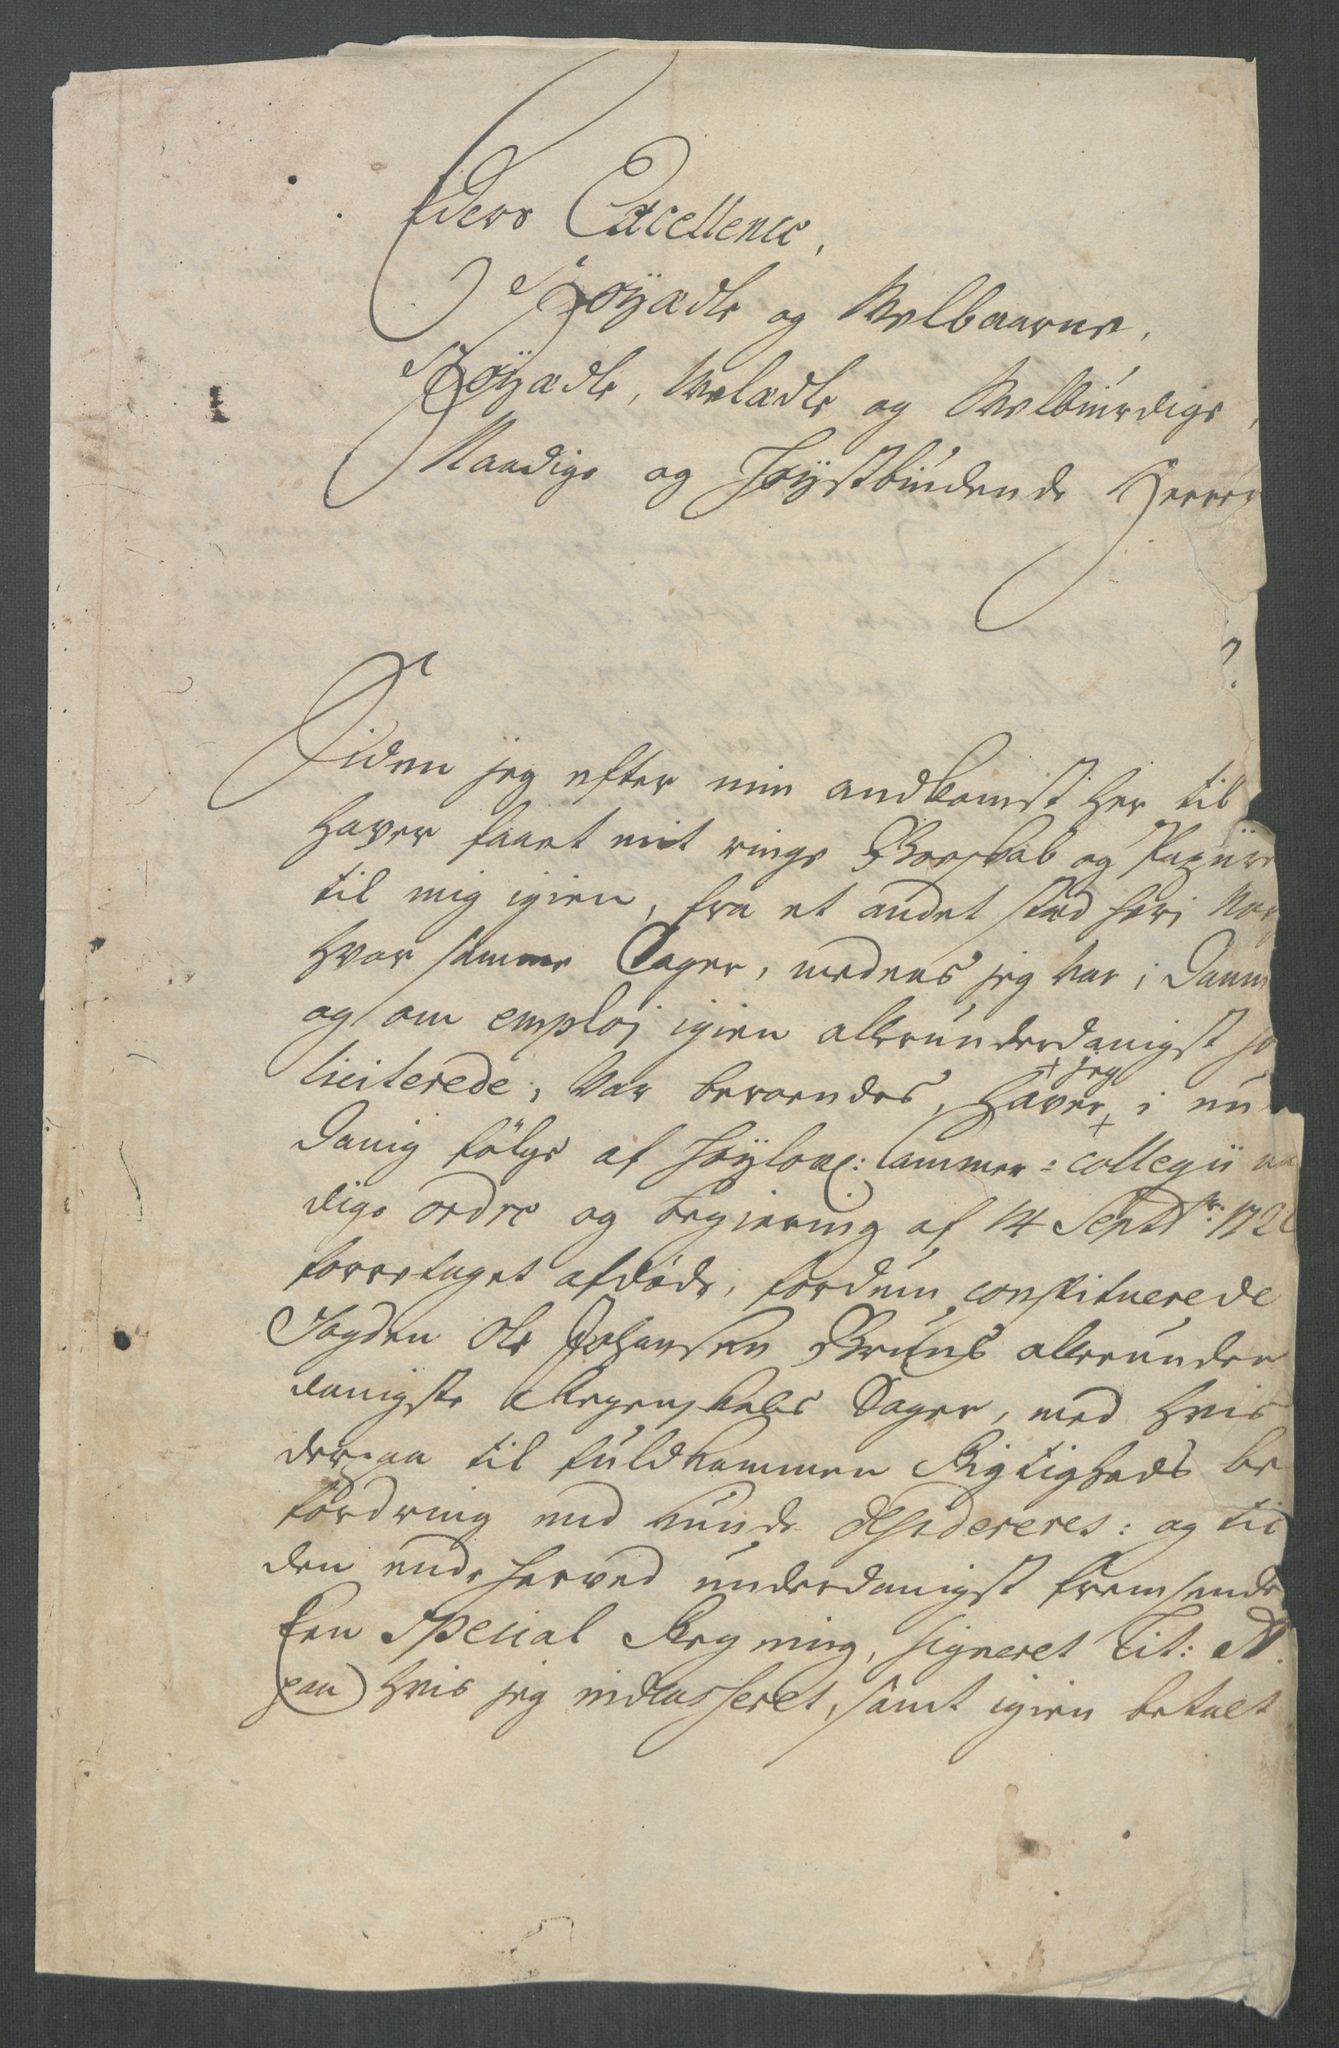 Eders Excellence,
Höÿædle og Welbaarne,
Höÿædle, Welædle og Welbürdige,
Naadige og Höÿstbiüdende Herrer
Siden jeg efter min andkomst her til
haver faaet mit ringe Boeskab og Papiire
til mig igien, fra et andet stæd her i Nor
hvor samme Sager, medens jeg var i Danm
og om emploj igien allerunderdanigst so
liciterede, var beroendes, haver jeg i un
danig fölge af Höÿlovl: Cammer=Collegii naa
dige ordre og begiering af 14 Septbr: 172
forretaget afdöde, fordum constituerede
Fogden Ole Johansen Bruns allerunder
danigste Regenskabs Sager, med hvis
derpaa til fuldkommen Rigtigheds be
fordring end kunde desidereres: og til
den ende herved underdanigst fremsende
Een Special Regning, signeret Lit: A.
paa hvis jeg indcasseret, samt igien betalt